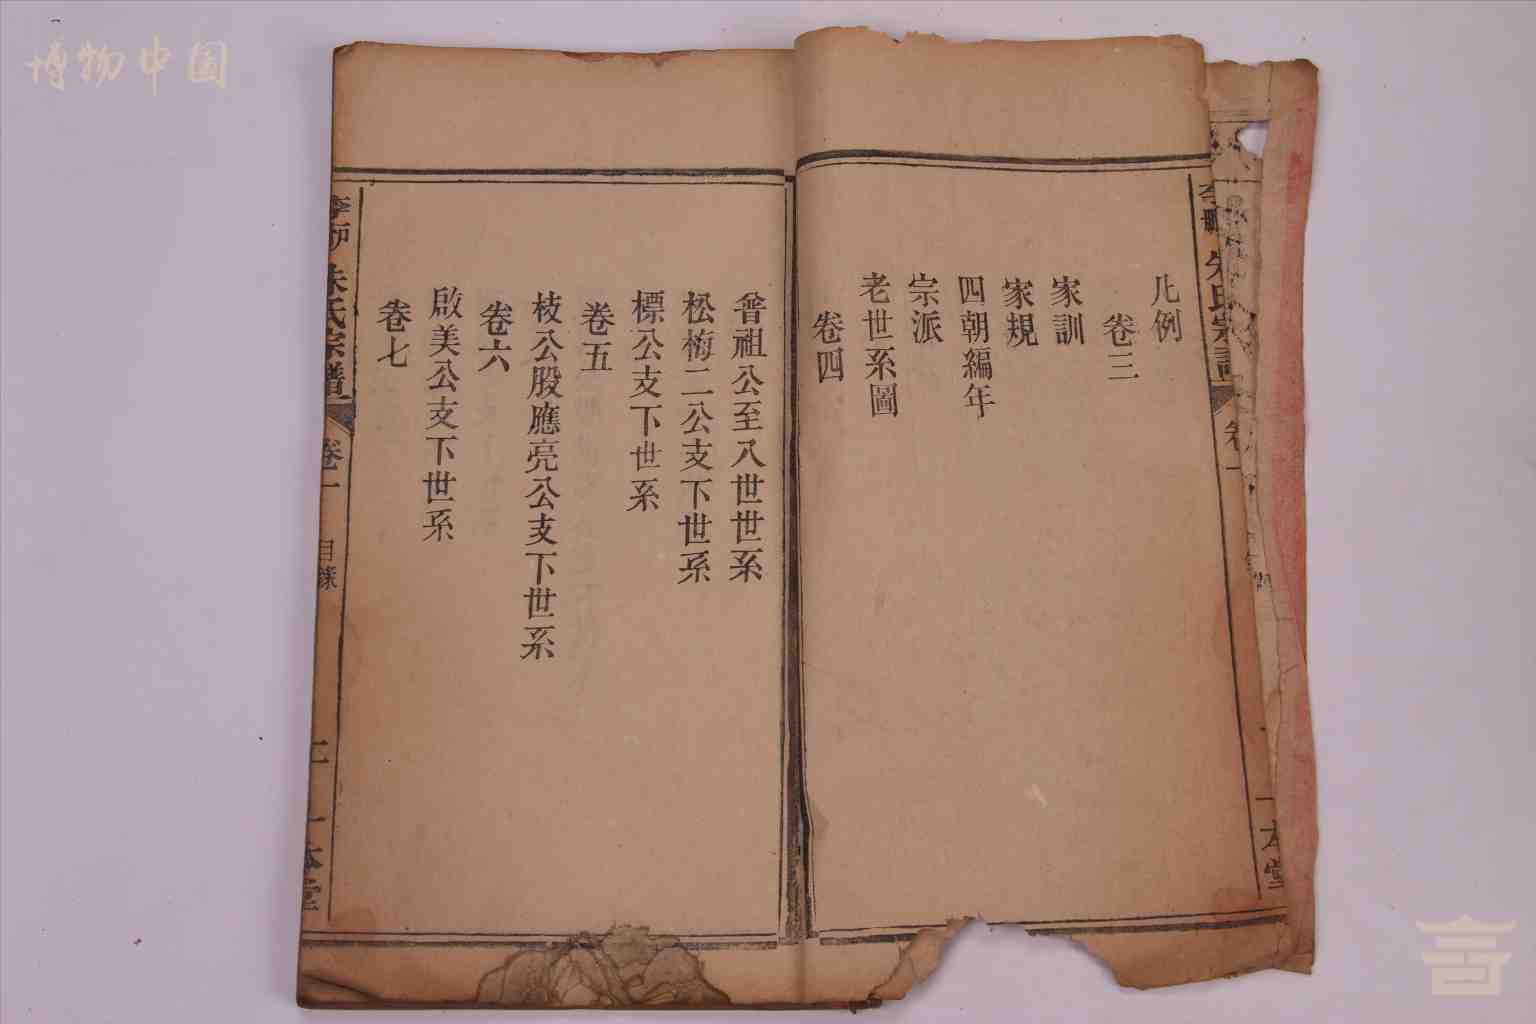 博物中国
凡例
卷三
家訓
家規
四朝編年
宗派
老世系圖
卷四
曾祖公至八世世系
松梅二公支下世系
標公支下世系
卷五
枝公股應亮公支下世系
卷六
啟美公支下世系
卷七
朱氏宗譜
卷一
目錄
二
一本堂